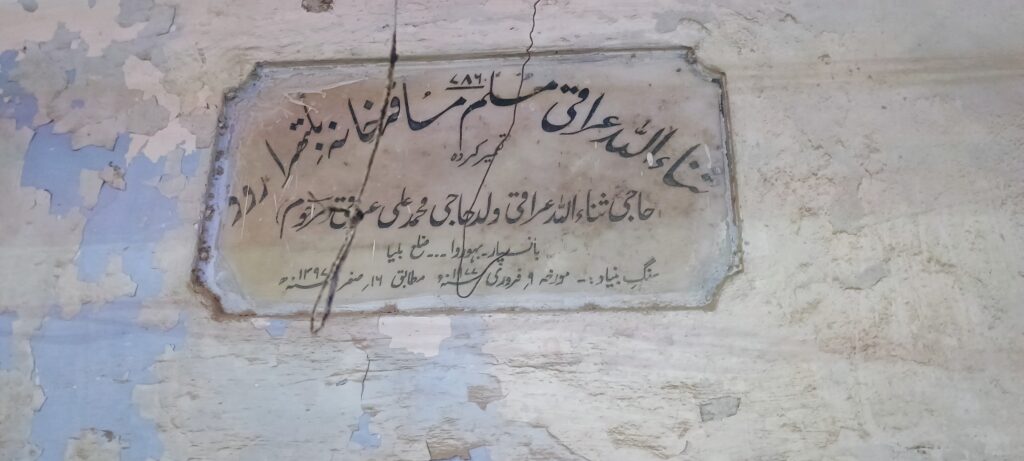 ۷۸۶
ثناء اللہ عراقی مسلم مسافر خانہ بلتھرا روڈ
تعمیر کردہ
حاجی ثناء اللہ عراقی ولد حاجی محمد علی عرف (مرحوم)
بانسپار۔بہوروا۔۔۔ضلع بلیا
سنگِ بنیاد:۔ مورخہ ۹؍ فروری ۱۹۷۷ء مطابق ۱۶؍ صفر ۱۳۹۷ھ